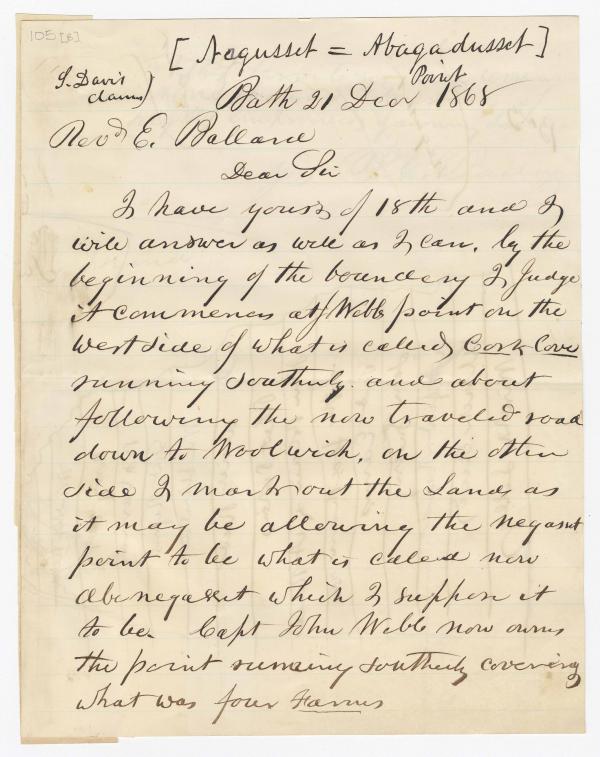 105 [B]
[ Negusset = Abagadusset ]
Point
S. Davis
claims)
Bath 21 Decr 1868
Revd E. Ballard
Dear Sir
I have yours of 18th and I
will answer as well as I can, by the
beginning of the boundery I Judge
it commences at Webb point on the
westside of what is called Cork Cove
running southerly. and about
following the now traveled road
down to Woolwich, on the other
side I mark out the Lands as
it may be allowing the negasset
point to be what is caled now
abenegasset which I suppose it
to be. Capt John Webb now owns
the point running southerly covering
what was four Farms